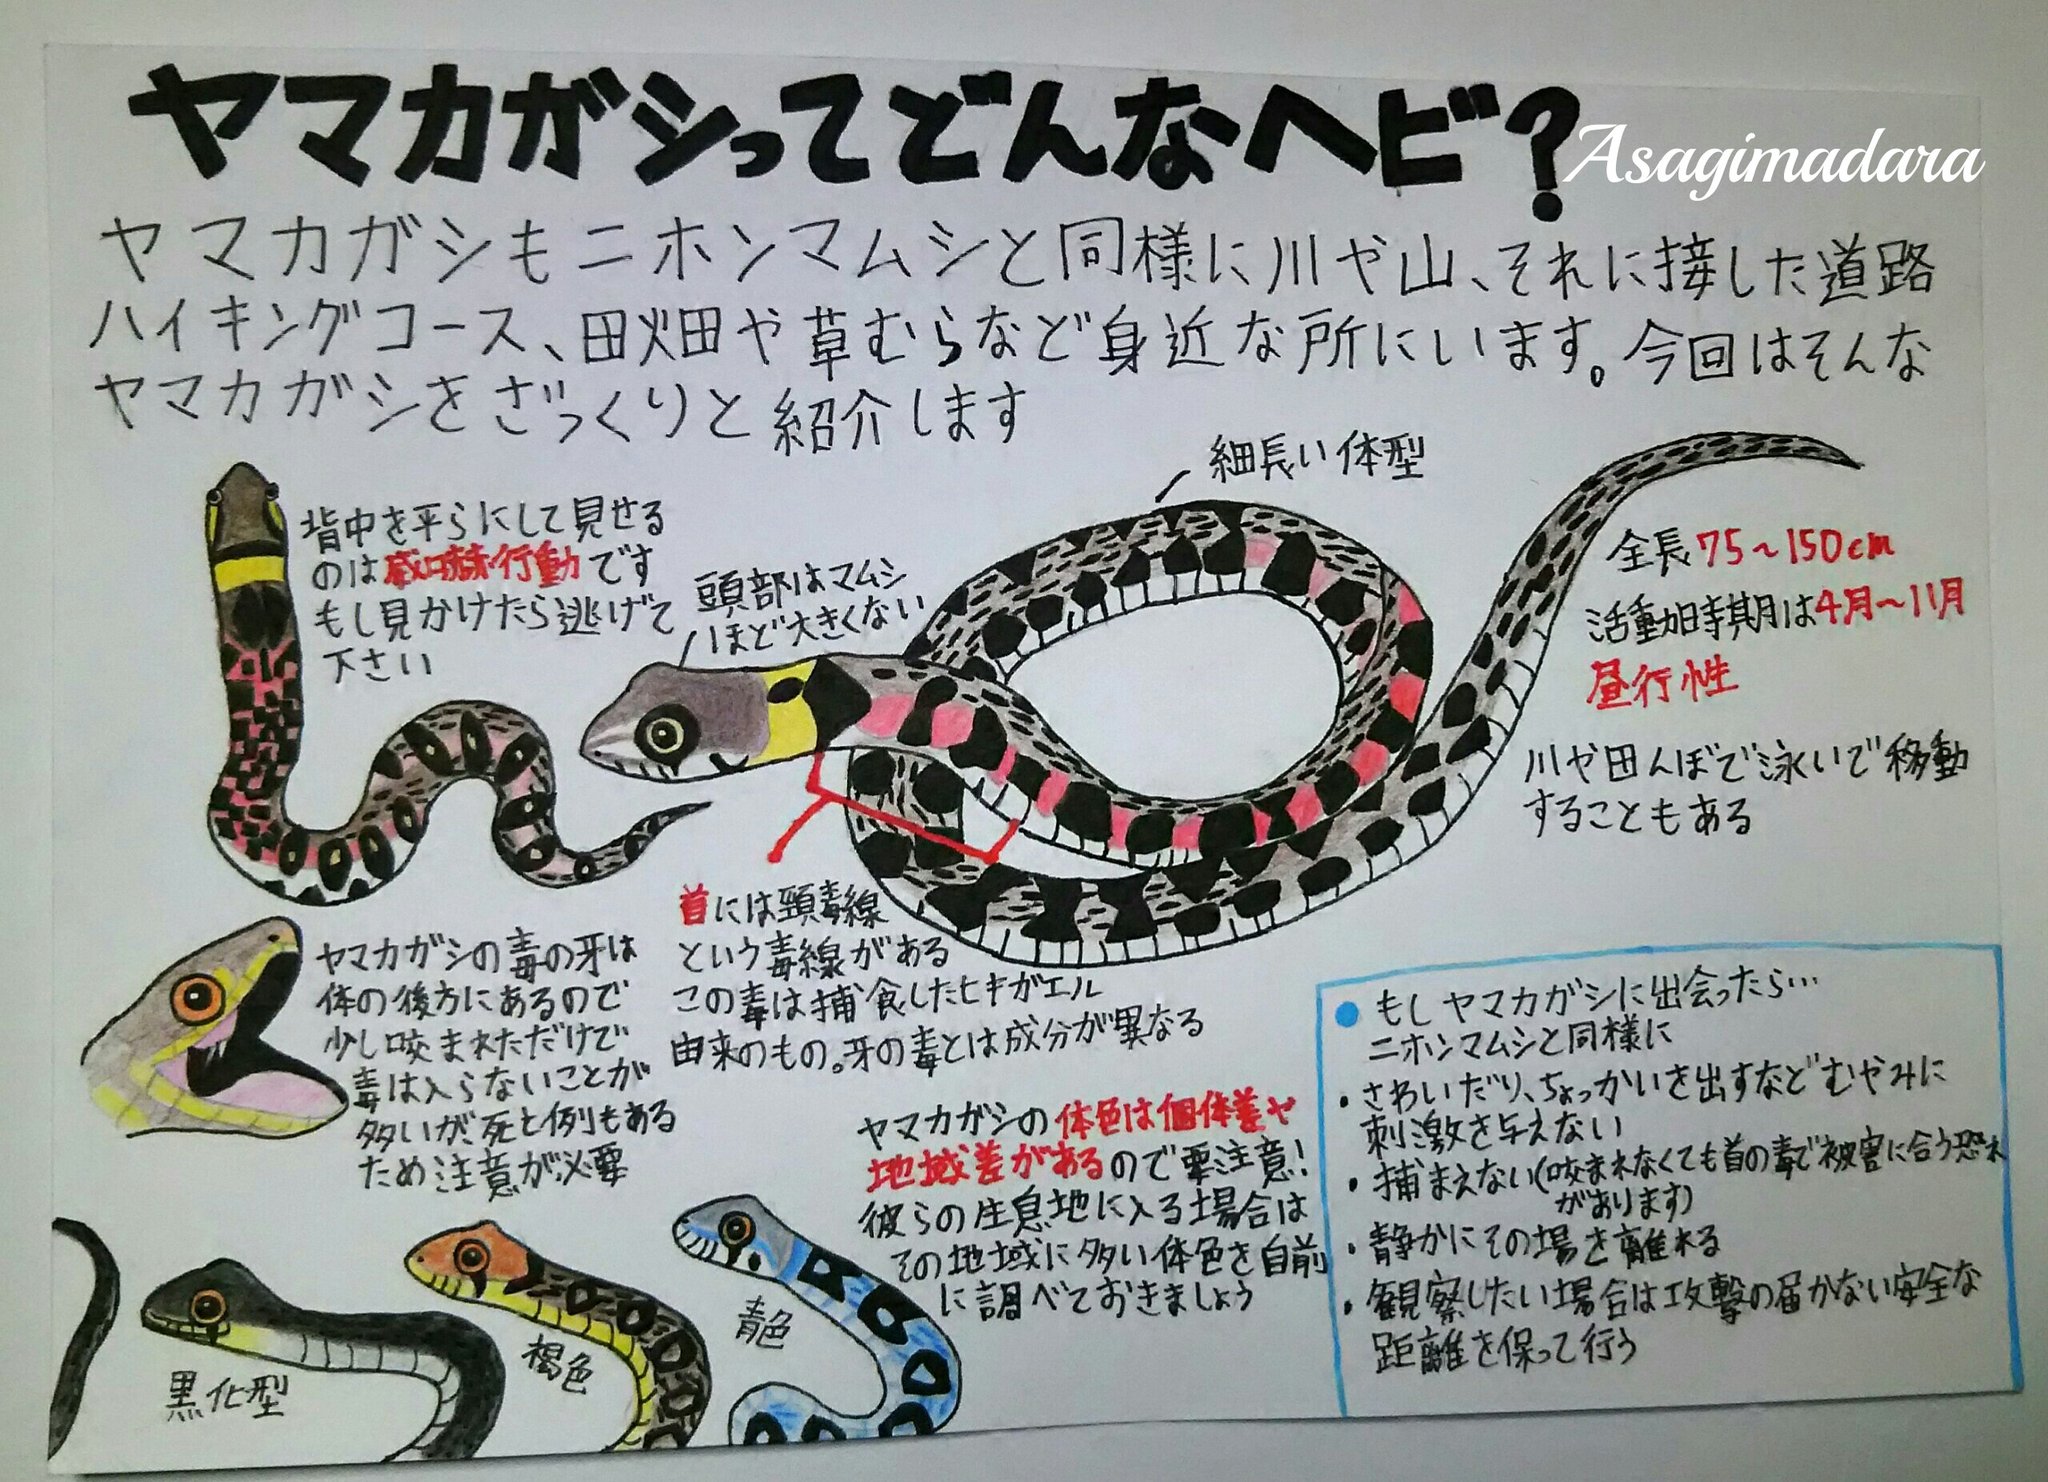 ヤマカガシってどんなヘビ?
Asagimadara
ヤマカガシもニホンマムシと同様に川や山、それに接した道路
ハイキングコース、田畑や草むらなど身近な所にいます。今回はそんな
ヤマカガシをざっくりと紹介します
背中を平らにして見せる
のは威嚇行動です
もし見かけたら逃げて
下さい
頭部はマムシ
ほど大きくない
細長い体型
全長75~150cm
活動時期は4月~11月
昼行性
川や田んぼで泳いで移動
することもある
ヤマカガシの毒の牙は
体の後方にあるので
少し咬まれただけで
毒は入らないことが
多いが、死と例もある
ため注意が必要
首には頸毒線
という毒線がある
この毒は捕食したヒキガエル
由来のもの。牙の毒とは成分が異なる
ヤマカガシの体色は個体差や
地域差があるので要注意!
彼らの生息地に入る場合は
その地域に多い体色を自前
に調べておきましょう
黒化型
褐色
青色
●もしヤマカガシに出会ったら…
ニホンマムシと同様に
・さわいだり、ちょっかいを出すなどむやみに
刺激を与えない
・捕まえない(咬まれなくても首の毒で被害に合う恐れ
があります)
・静かにその場を離れる
・観察したい場合は攻撃の届かない安全な
距離を保って行う